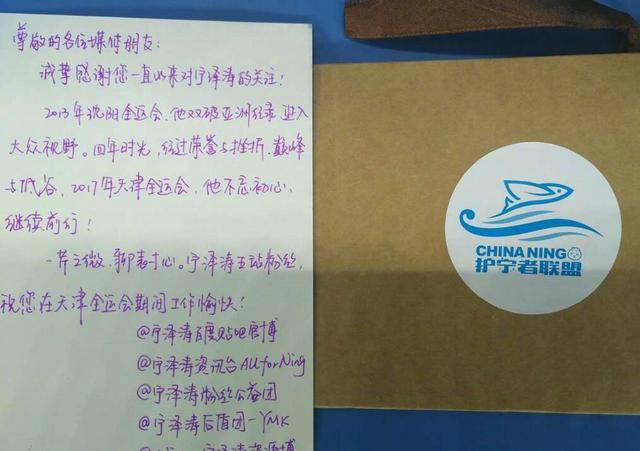 尊敬的各位媒体朋友:
诚挚感谢您一直以来对宁泽涛的关注!
2013年沈阳全运会,他双破亚洲纪录,进入
大众视野。四年时光,经过荣誉与挫折、巅峰
与低谷,2017年天津全运会,他不忘初心,
继续前行!
一芹之微,聊表寸心。宁泽涛五站粉丝,
祝您在天津全运会期间工作愉快!
@宁泽涛百度贴吧官博
@宁泽涛资讯台AllforNing
@宁泽涛粉丝公益团
@宁泽涛后盾团-YMK
宁泽涛资源博
CHINA NING
护宁者联盟